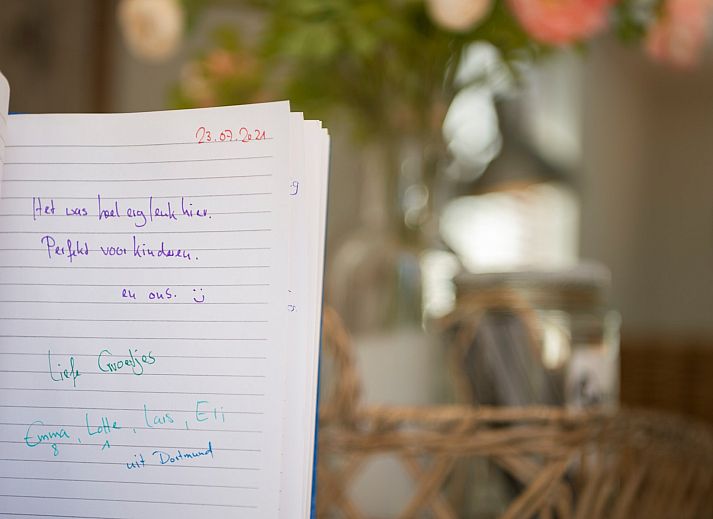 23.07.2021
Het was heel erg leuk hier.
Perfekt voor kinderen.
en ons. :)
Liefe Groetjes
Emma, Lotte, Lars, Eri
8 1
uit Dortmund